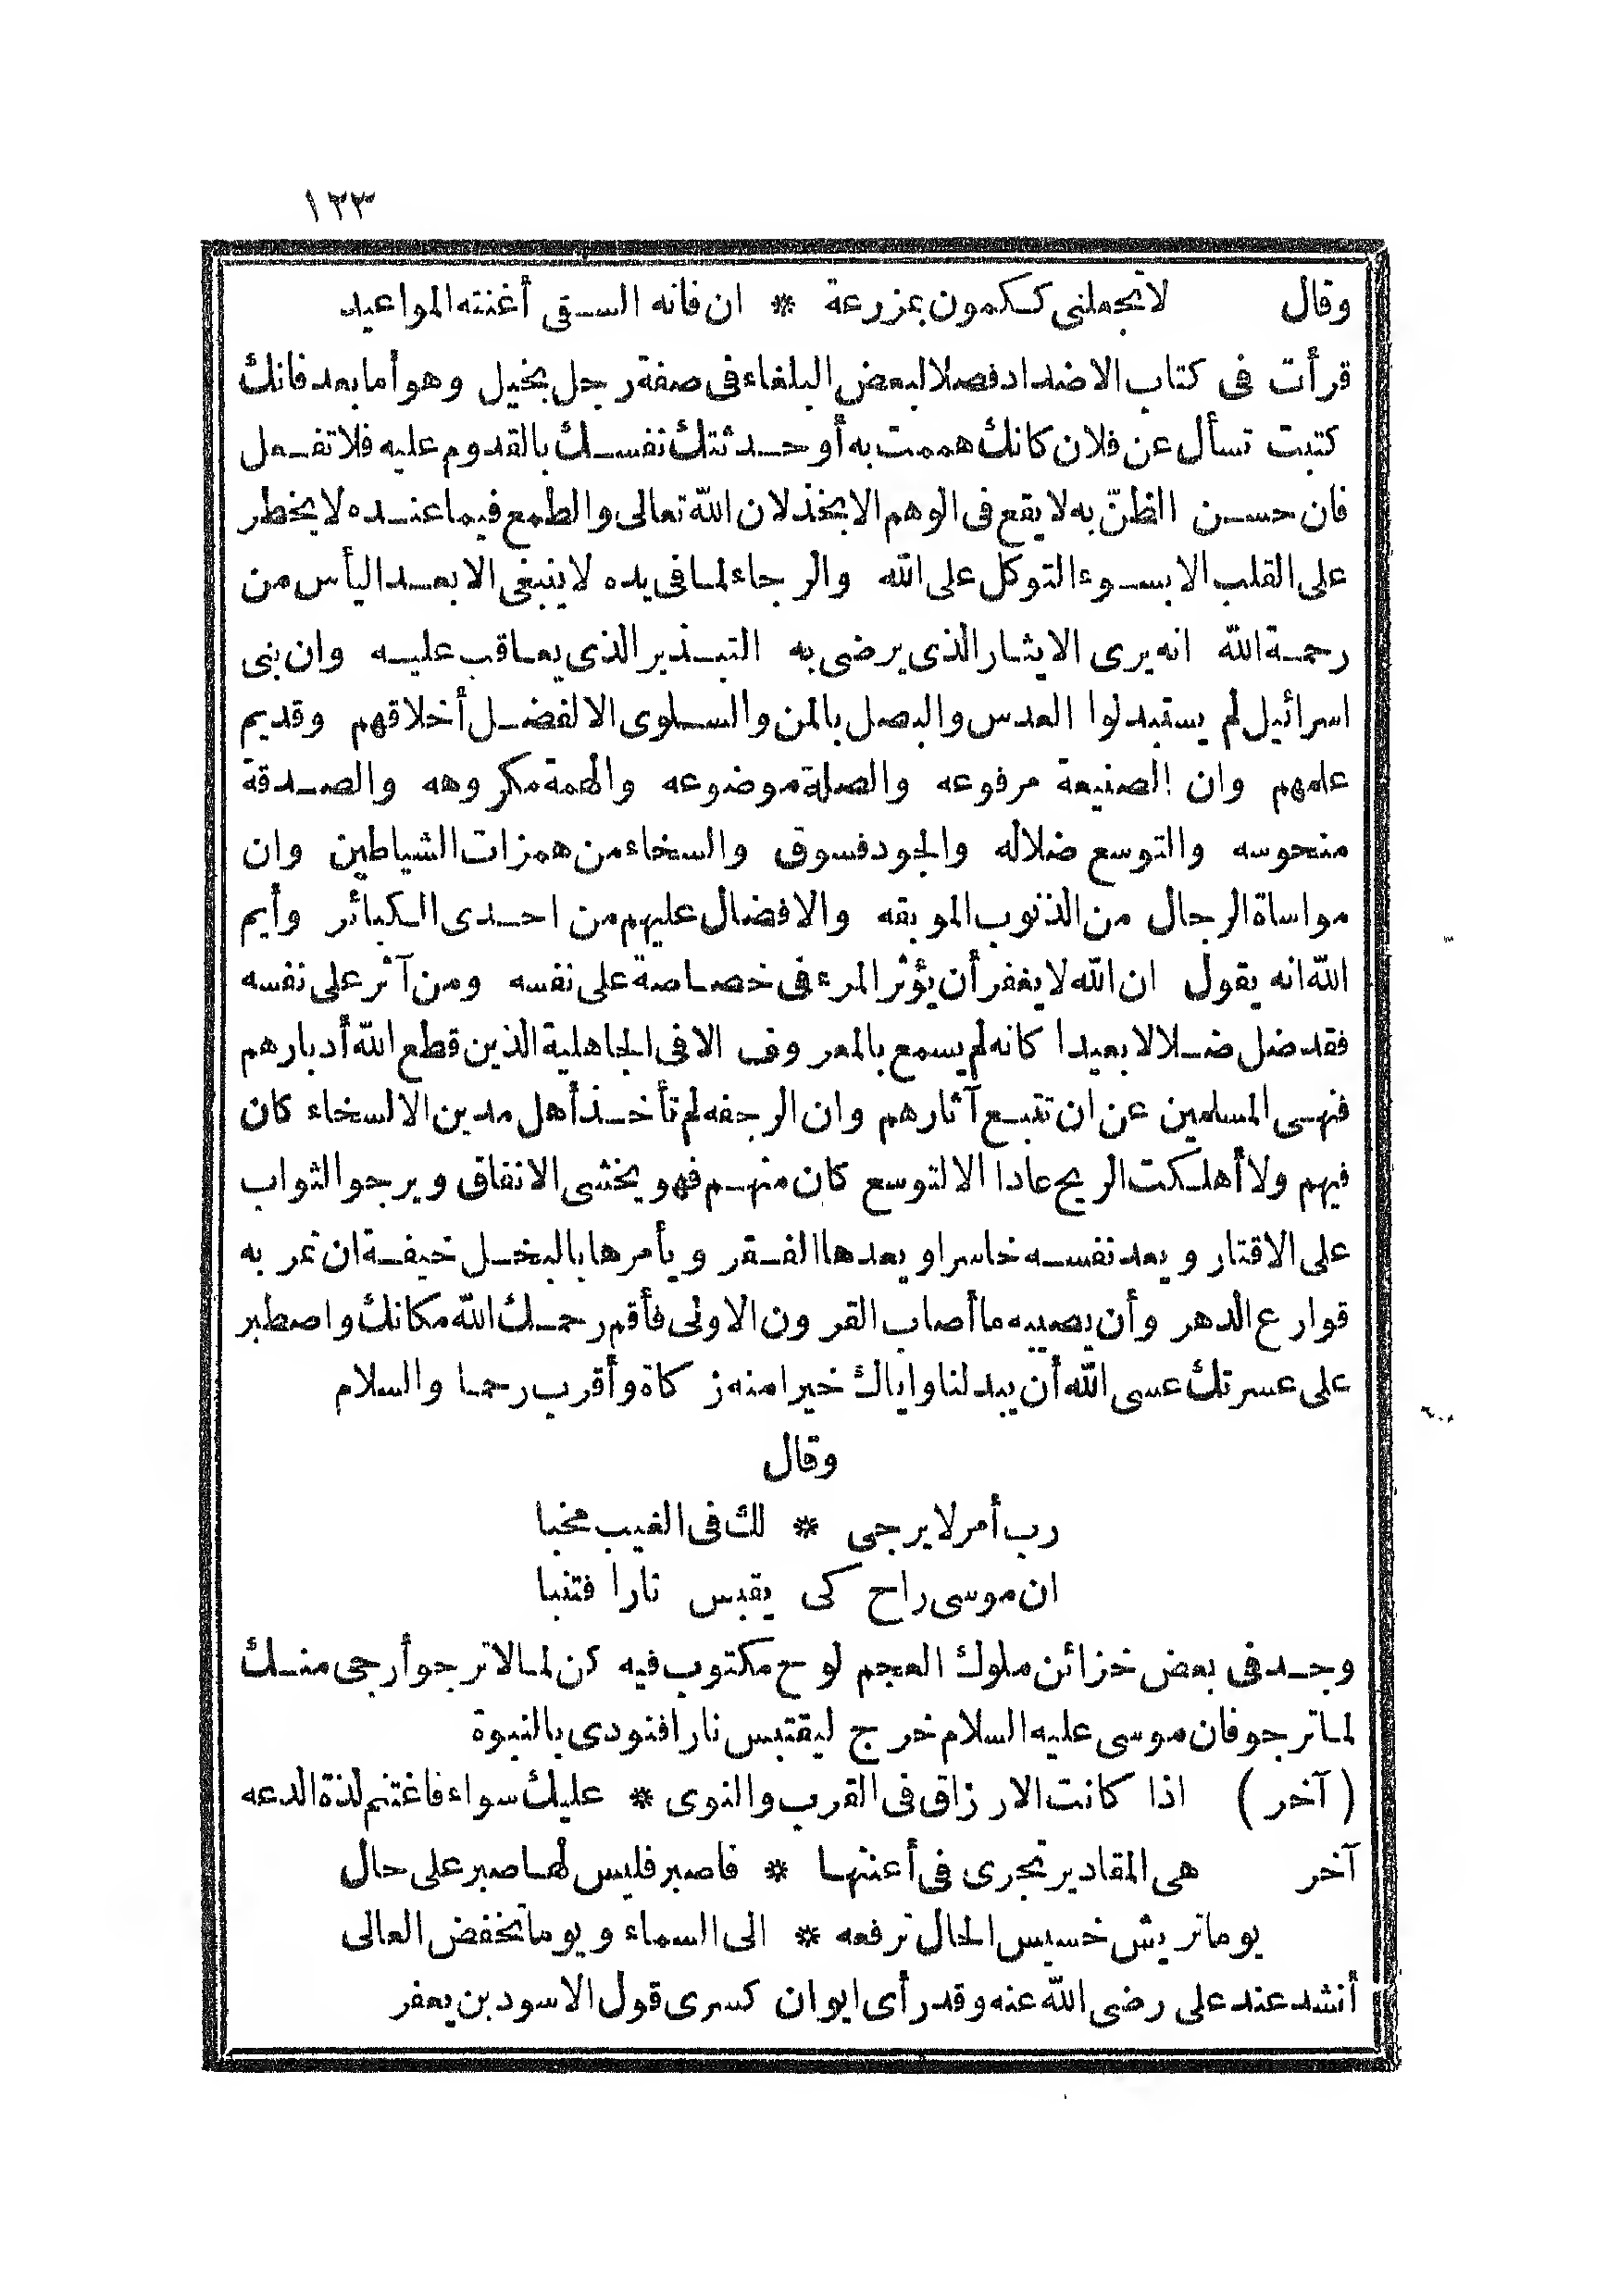 ١٢٣
وقال لا تجعلنى ككمون بمزرعة * ان فاته السقى أغنته المواعيد
قرأت فى كتاب الاضداد فصلا لبعض البلغاء فى صفة رجل بخيل وهو أما بعد فانك
كتبت تسأل عن فلان كانك هممت به أو حدثتك نفسك بالقدوم عليه فلا تفعل
فان حسن الظنّ به لا يقع فى الوهم الا بخذلان الله تعالى والطمع فيما عنده لا يخطر
على القلب الا بسوء التوكل على الله والرجاء لما فى يده لا ينبغى الا بعد اليأس من
رحمة الله انه يرى الايثار الذى يرضى به التبذير الذى يعاقب عليه وان بنى
اسرائيل لم يستبدلوا العدس والبصل بالمن والسلوى الا لفضل أخلاقهم وقديم
علمهم وان الصنيعة مرفوعه والصلة موضوعه والهمة مكروهه والصدقة
منحوسه والتوسع ضلاله والجود فسوق والسخاء من همزات الشياطين وان
مواساة الرجال من الذنوب الموبقه والافضال عليهم من احدى الكبائر وأيم
الله انه يقول ان الله لا يغفر أن يؤثر المرء فى خصاصة على نفسه ومن آثر على نفسه
فقد ضل ضلالا بعيدا كانه لم يسمع بالمعروف الا فى الجاهلية الذين قطع الله أدبارهم
فنهى المسلمين عن ان تتبع آثارهم وان الرجفه لم تأخذ أهل مدين الا لسخاء كان
فيهم ولا أهلكت الريح عادا الا لتوسع كان منهم فهو يخشى الانفاق ويرجو الثواب
على الاقتار ويعد نفسه خاسرا ويعدها الفقر ويأمرها بالبخل خيفة ان تمر به
قوارع الدهر وأن يصيبه ما أصاب القرون الاولى فأقم رحمك الله مكانك واصطبر
على عسرتك عسى الله أن يبدلنا واياك خيرا منه زكاة وأقرب رحما والسلام
وقال
رب أمر لا يرجى * لك فى الغيب مخبا
ان موسى راح كى يقبس نارا فتنبا
وجد فى بعض خزائن ملوك العجم لوح مكتوب فيه كن لما لا ترجو أرجى منك
لما ترجو فان موسى عليه السلام خرج ليقتبس نارا فنودى بالنبوة
(آخر) اذا كانت الارزاق فى القرب والنوى * عليك سواء فاغتنم لذة الدعه
آخر هى المقادير تجرى فى أعنتها * فاصبر فليس لها صبر على حال
يوما تريش خسيس الحال ترفعه * الى السماء ويوما تخفض العالى
أنشد عند على رضى الله عنه وقد رأى ايوان كسرى قول الاسود بن يعفر